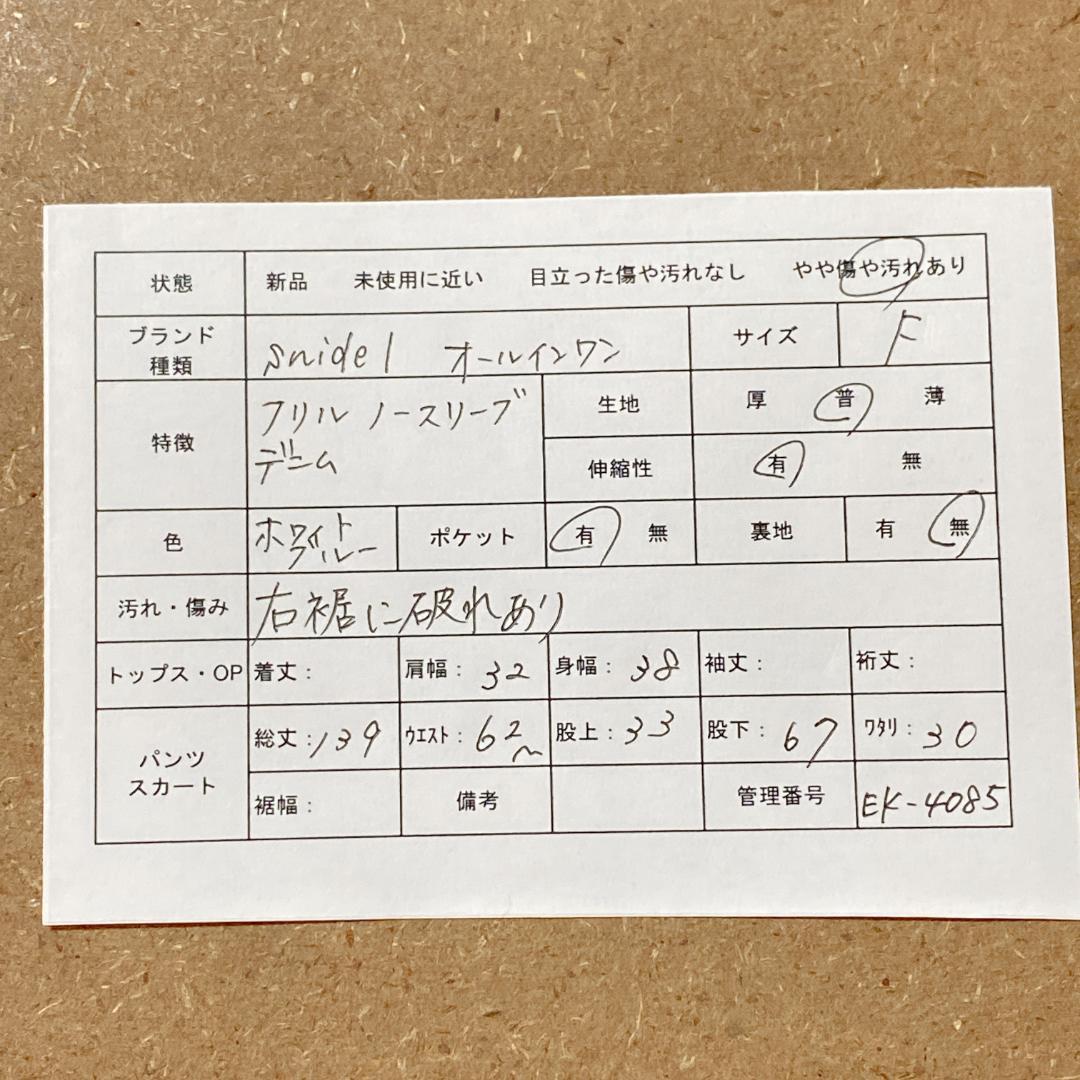 状態 新品 未使用に近い 目立った傷や汚れなし やや傷や汚れあり
ブランド
種類 snidel オールインワン サイズ F
特徴 フリル ノースリーブ 生地 厚 普 薄
デニム 伸縮性 有 無
色 ホワイト
ブルー ポケット 有 無 裏地 有 無
汚れ・傷み 右裾に破れあり
トップス・OP 着丈： 肩幅： 32 身幅： 38 袖丈： 裄丈：
パンツ
スカート 総丈：139 ｳｴｽﾄ： 62〜 股上：33 股下： 67 ﾜﾀﾘ：30
裾幅： 備考 管理番号 EK-4085